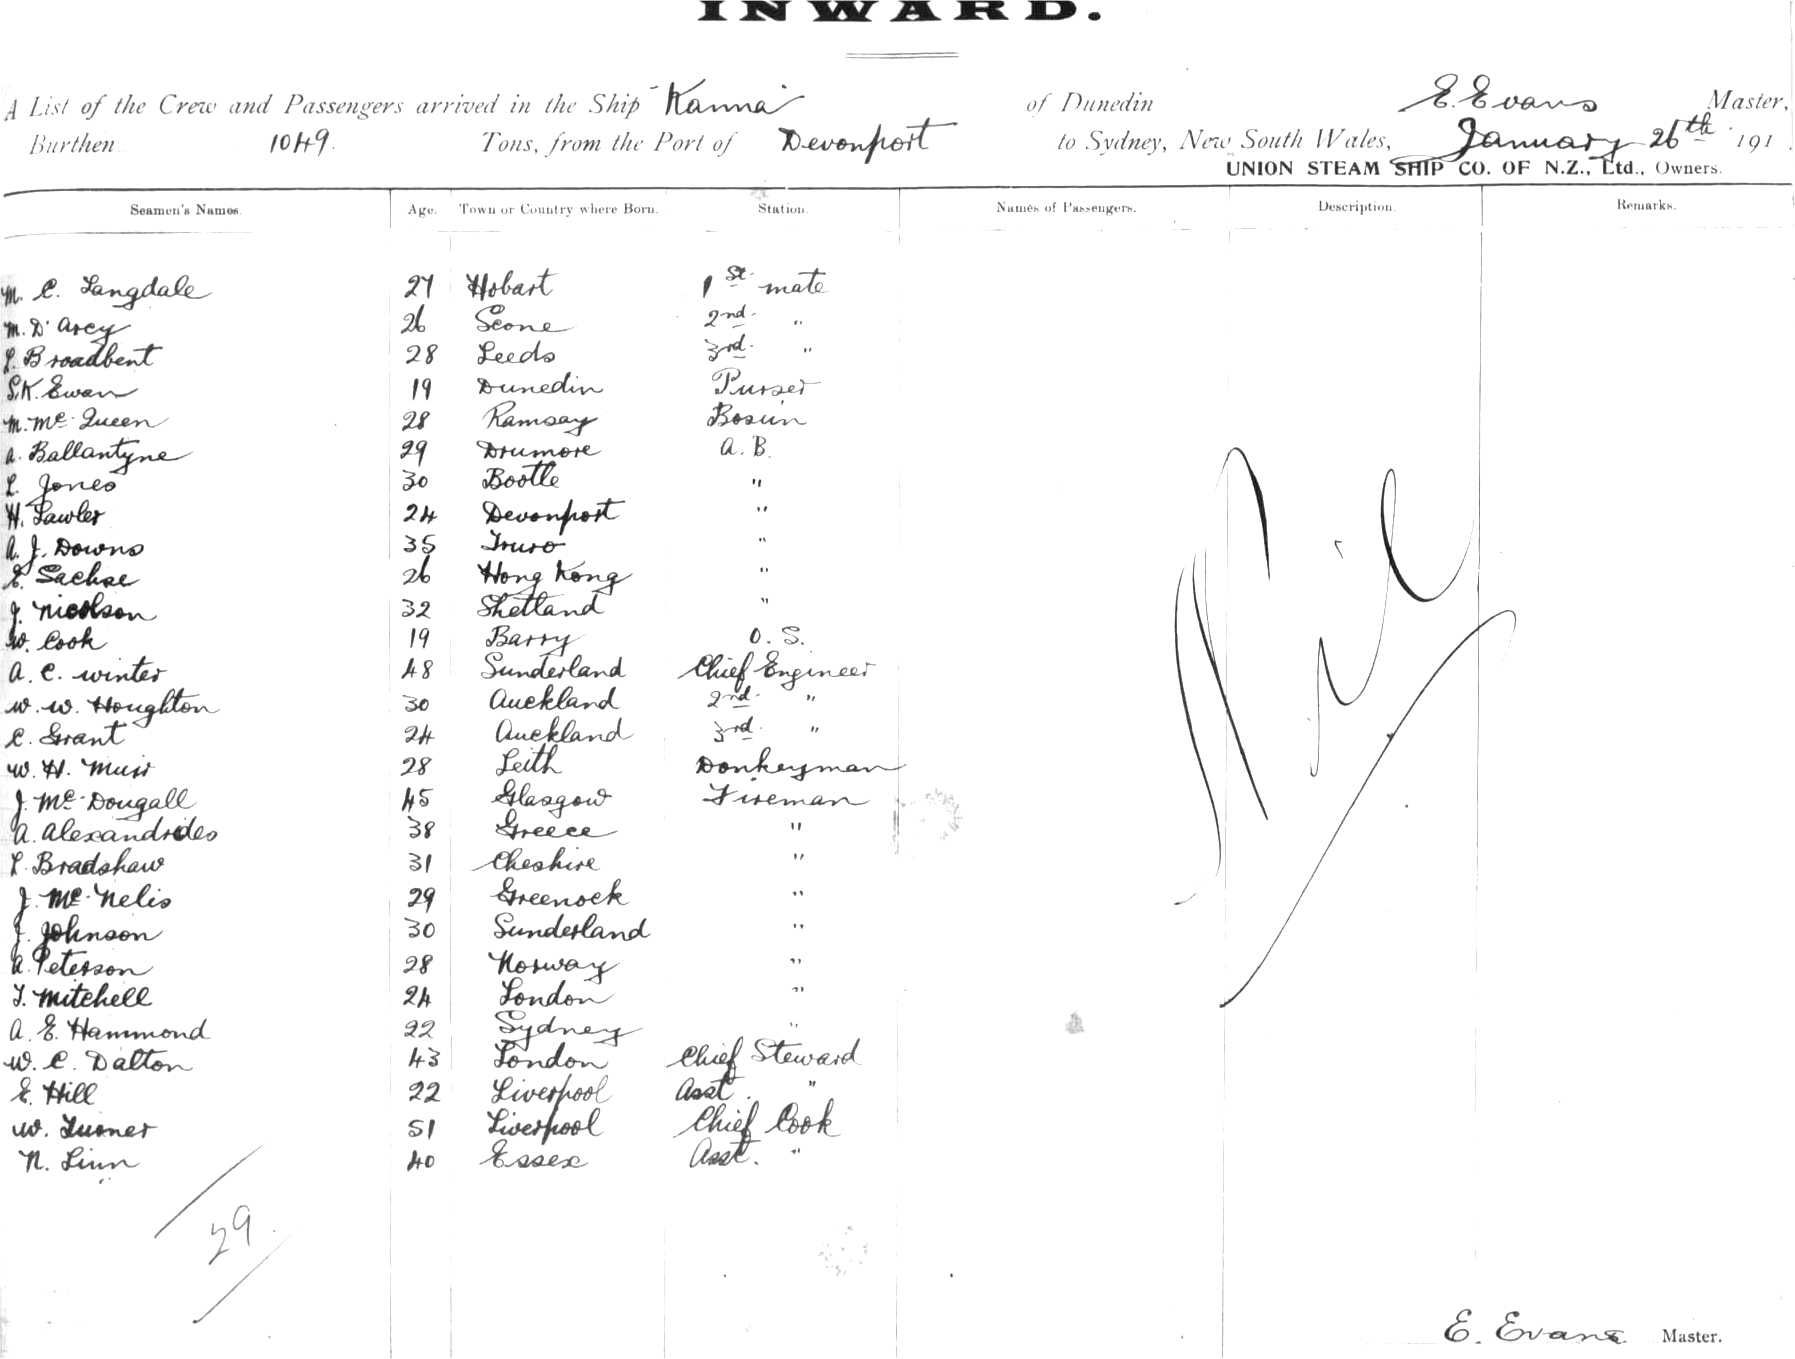 INWARD.
A List of the Crew and Passengers arrived in the Ship "Kanna" of Dunedin E. Evans Master,
Burthen 1049. Tons, from the Port of Devonport to Sydney, New South Wales, January 26th 191
UNION STEAM SHIP CO. OF N.Z., Ltd., Owners.
Seamen's Names. Age. Town or Country where Born. Station. Names of Passengers. Description. Remarks.
M. C. Langdale 27 Hobart 1st mate
M. D'Arcy 26 Scone 2nd "
L. Broadbent 28 Leeds 3rd "
S.K. Ewan 19 Dunedin Purser
M. McQueen 28 Ramsay Bosun
A. Ballantyne 29 Drumore A.B.
L. Jones 30 Bootle "
H. Lawler 24 Devonport "
A. J. Downs 35 Truro "
E. Sachse 26 Hong Kong "
J. Nicolson 32 Shetland "
W. Cook 19 Barry O.S.
A. C. Winter 48 Sunderland Chief Engineer
W. W. Houghton 30 Auckland 2nd "
C. Grant 24 Auckland 3rd "
W. H. Muir 28 Leith Donkeyman
J. McDougall 45 Glasgow Fireman
A. Alexandrides 38 Greece "
L. Bradshaw 31 Cheshire "
J. McNelis 29 Greenock "
J. Johnson 30 Sunderland "
A. Peterson 28 Norway "
T. Mitchell 24 London "
A. E. Hammond 22 Sydney "
W. C. Dalton 43 London Chief Steward
E. Hill 22 Liverpool Asst. "
W. Turner 51 Liverpool Chief Cook
N. Linn 40 Essex Asst. "
Nil
29
E. Evans Master.